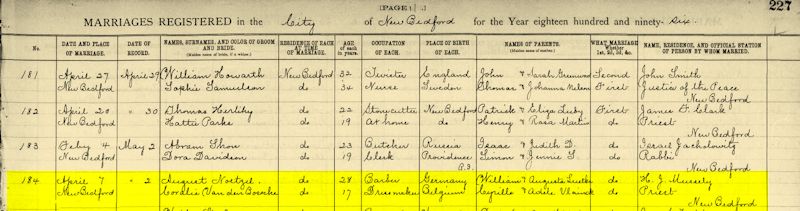 [PAGE] 227
MARRIAGES REGISTERED in the City of New Bedford for the Year eighteen hundred and ninety-Six
No. DATE AND PLACE OF MARRIAGE. DATE OF RECORD. NAMES, SURNAMES, AND COLOR OF GROOM AND BRIDE. (Maiden name of bride, if a widow.) RESIDENCE OF EACH AT TIME OF MARRIAGE. AGE of each in years. OCCUPATION OF EACH. PLACE OF BIRTH OF EACH. NAMES OF PARENTS. (Maiden name of mother.) WHAT MARRIAGE Whether 1st, 2d, 3d, &c. NAME, RESIDENCE, AND OFFICIAL STATION OF PERSON BY WHOM MARRIED.
181 April 27 April 29 William Howarth New Bedford 32 Twister England John & Sarah Greenwood Second John Smith
New Bedford Sophie Samuelson do 34 Nurse Sweden Thomas & Johanna Nelson First Justice of the Peace
New Bedford
182 April 20 " 30 Thomas Herlihy do 22 Stonecutter New Bedford Patrick & Eliza First James F. Clark
New Bedford Hattie Parks do 19 At home do Henry & Rosa Martin do Priest
New Bedford
183 Feby 4 May 2 Abram Shon do 23 Butcher Russia Isaac & Judith D. do Israel
New Bedford Dora Davidson do 19 Clerk Providence R.I. Simon & Jennie G. do Rabbi
New Bedford
184 April 7 " 2 August Noetzel do 28 Barber Germany William & Auguste do H. J. Mussely
New Bedford Coralie Van den Bossche do 17 Dressmaker Belgium Cyrille & Adele Vlainck do Priest
New Bedford